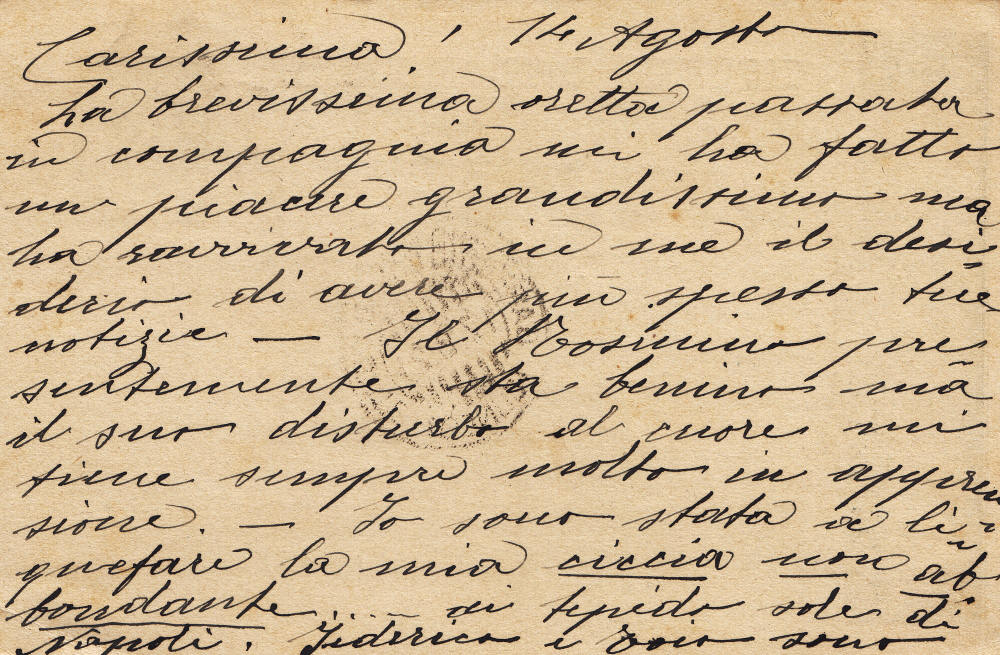 Carissima, 14 Agosto
La brevissima oretta passata
in compagnia mi ha fatto
un piacere grandissimo ma
ha ravvivato in me il desi
derio di avere più spesso tue
notizie — Il Cosimino pre
sentemente sta benino ma
il suo disturbo al cuore mi
tiene sempre molto in appren
sione. — Io sono stata a li-
quefare la mia ciccia non ab-
bondante ai tepido sole di
Napoli. Federico e sono